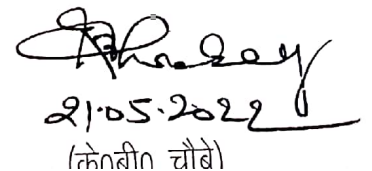 21.05.2022
(के०बी० चौबे)